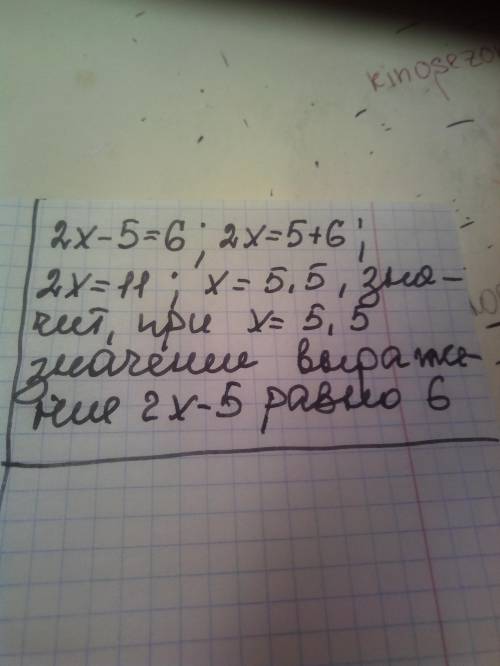 kinosezon
2x-5=6; 2x=5+6;
2x=11; x=5,5, зна-
чит, при x=5,5
значении выраже-
ние 2x-5 равно 6